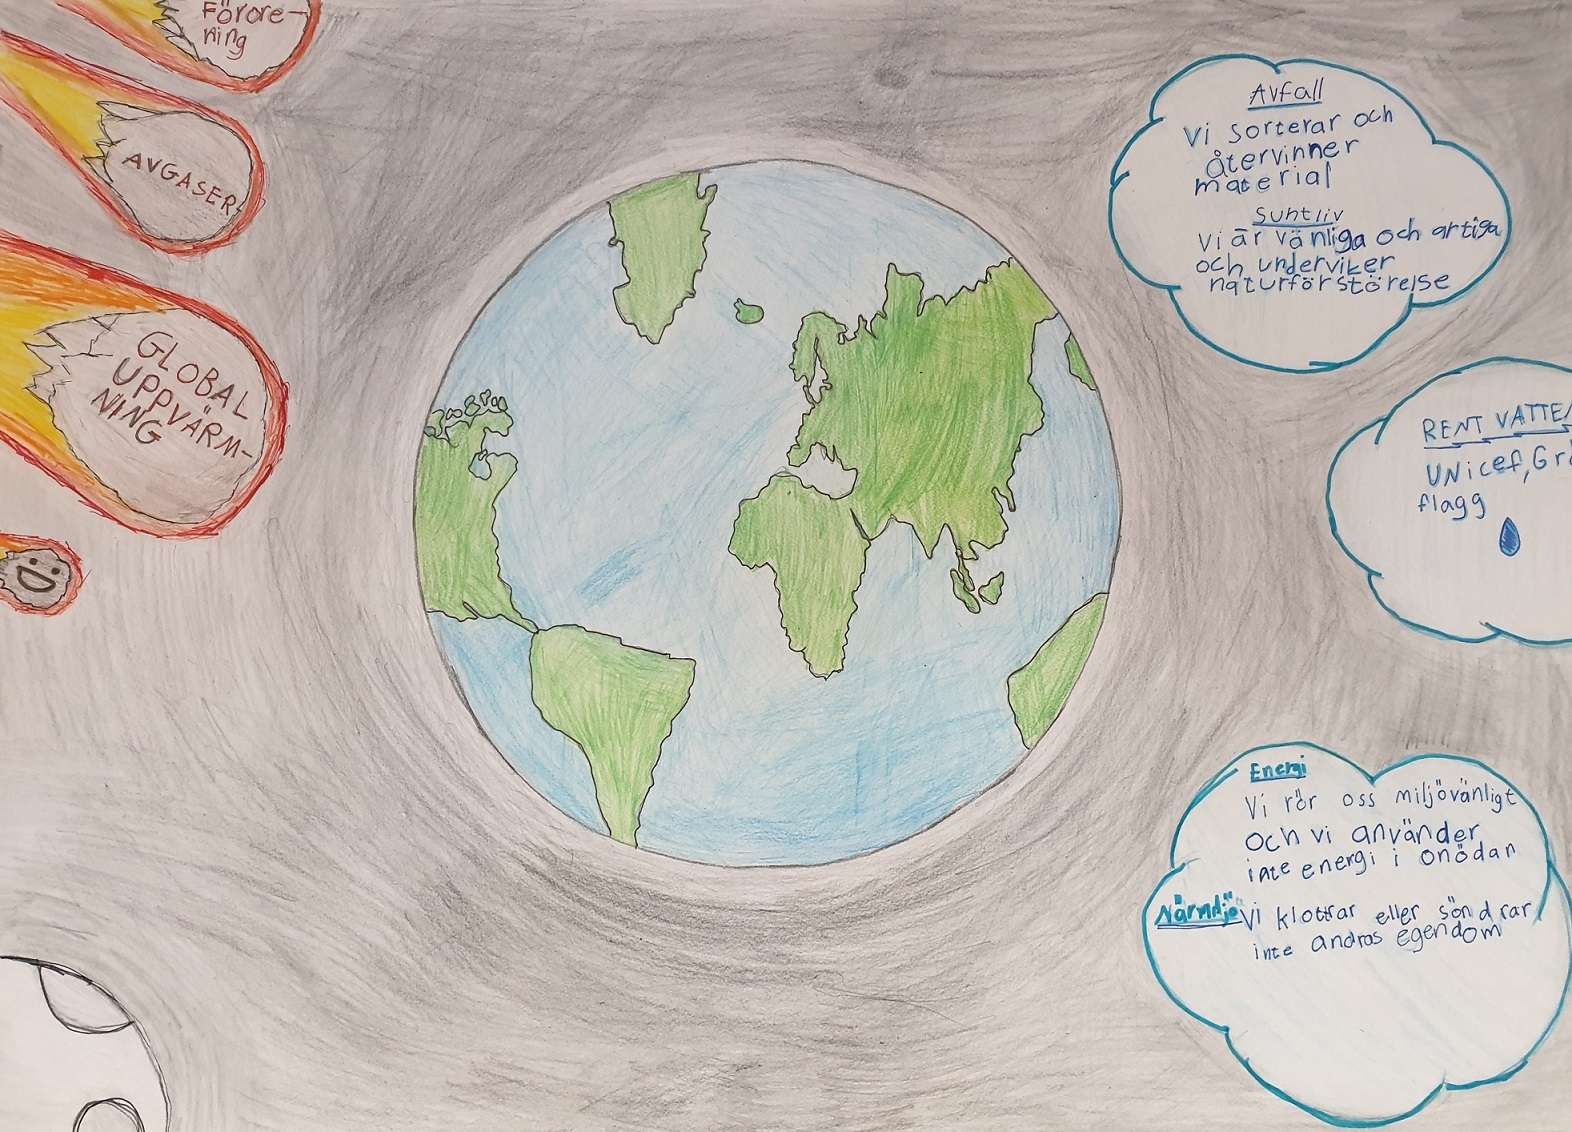 Förore-
ning
AVGASER
GLOBAL
UPPVÄRM-
NING
Avfall
Vi sorterar och
återvinner
material
Suntliv
Vi är vänliga och artiga
och underviker
naturförstörelse
RENT VATTEN
UNicef, Grö
flagg
Energi
Vi rör oss miljövänligt
och vi använder
inte energi i onödan
Närmiljö Vi klottrar eller söndrar
inte andras egendom